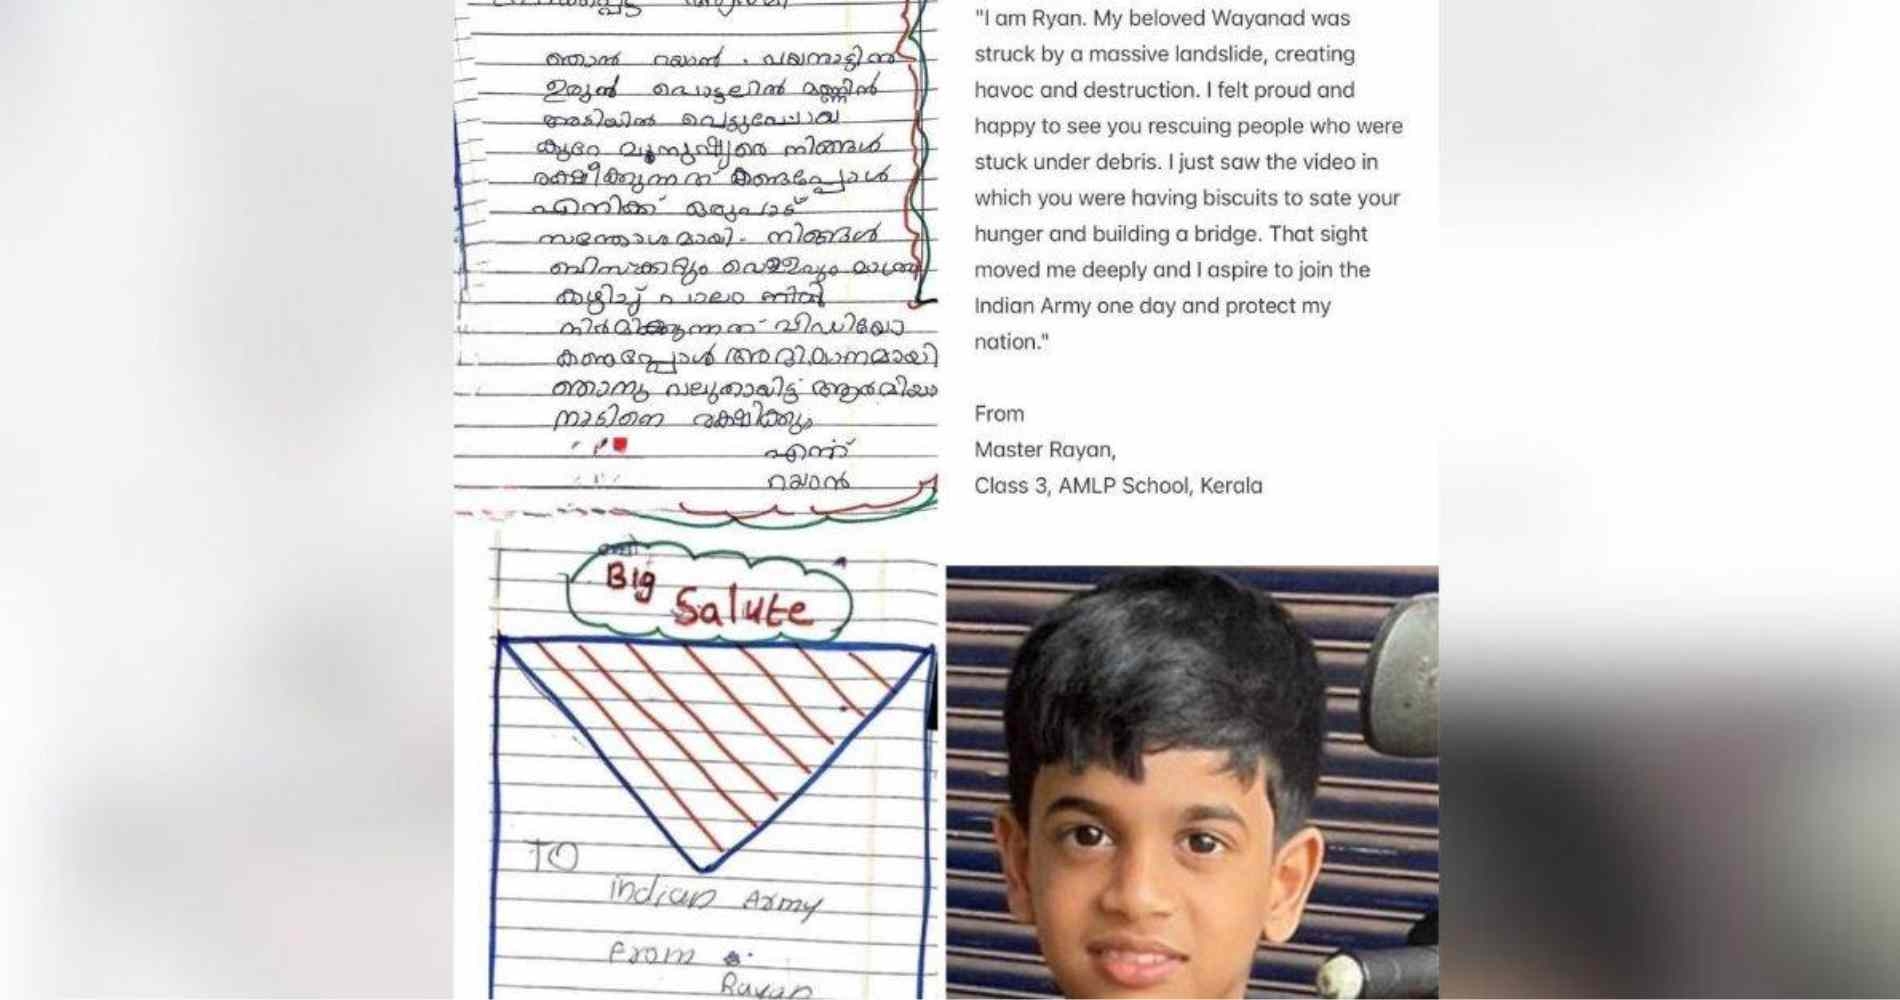 ഞാൻ റയാൻ . വയനാട്ടിൽ
ഉരുൾ പൊട്ടലിൽ മണ്ണിൻ
അടിയിൽ പെട്ടുപോയ
കുറേ മനുഷ്യരെ നിങ്ങൾ
രക്ഷിക്കുന്നത് കണ്ടപ്പോൾ
എനിക്ക് ഒരുപാട്
സന്തോശമായി. നിങ്ങൾ
ബിസ്ക്കറ്റും വെള്ളവും മാത്രം
കഴിച്ച് പാലം
നിർമിക്കുന്നത് വിഡിയോ
കണ്ടപ്പോൾ അഭിമാനമായി
ഞാനു വലുതായിട്ട്
നാടിനെ രക്ഷിക്കും
എന്ന്
റയാൻ
"I am Ryan. My beloved Wayanad was
struck by a massive landslide, creating
havoc and destruction. I felt proud and
happy to see you rescuing people who were
stuck under debris. I just saw the video in
which you were having biscuits to sate your
hunger and building a bridge. That sight
moved me deeply and I aspire to join the
Indian Army one day and protect my
nation."
From
Master Rayan,
Class 3, AMLP School, Kerala
Big
Salute
TO
indian Army
From
Rayan